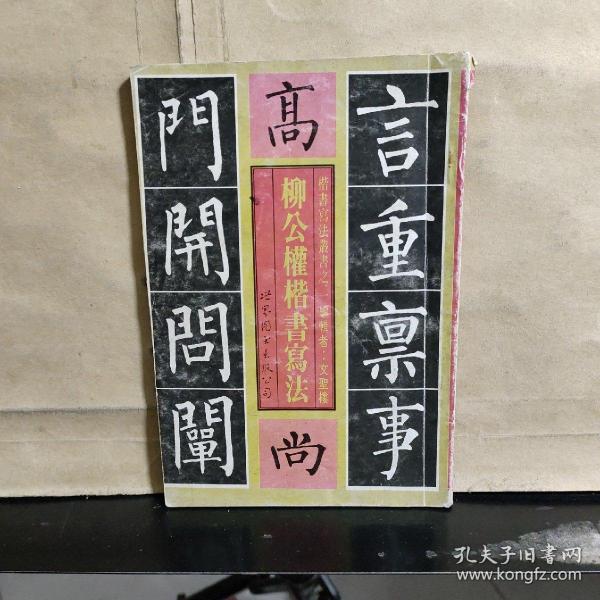 言重禀事
高
楷書寫法叢書之
編者：文聖樓
柳公權楷書寫法
世界图书出版公司
尚
門開問闡
孔夫子旧书网
www.kongfz.com